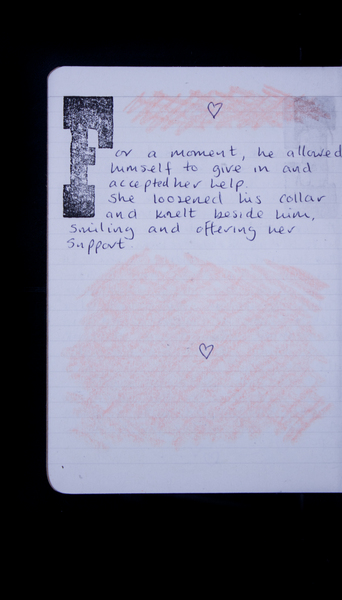 For a moment, he allowed
himself to give in and
accepted her help.
She loosened his collar
and knelt beside him,
smiling and offering her
support.